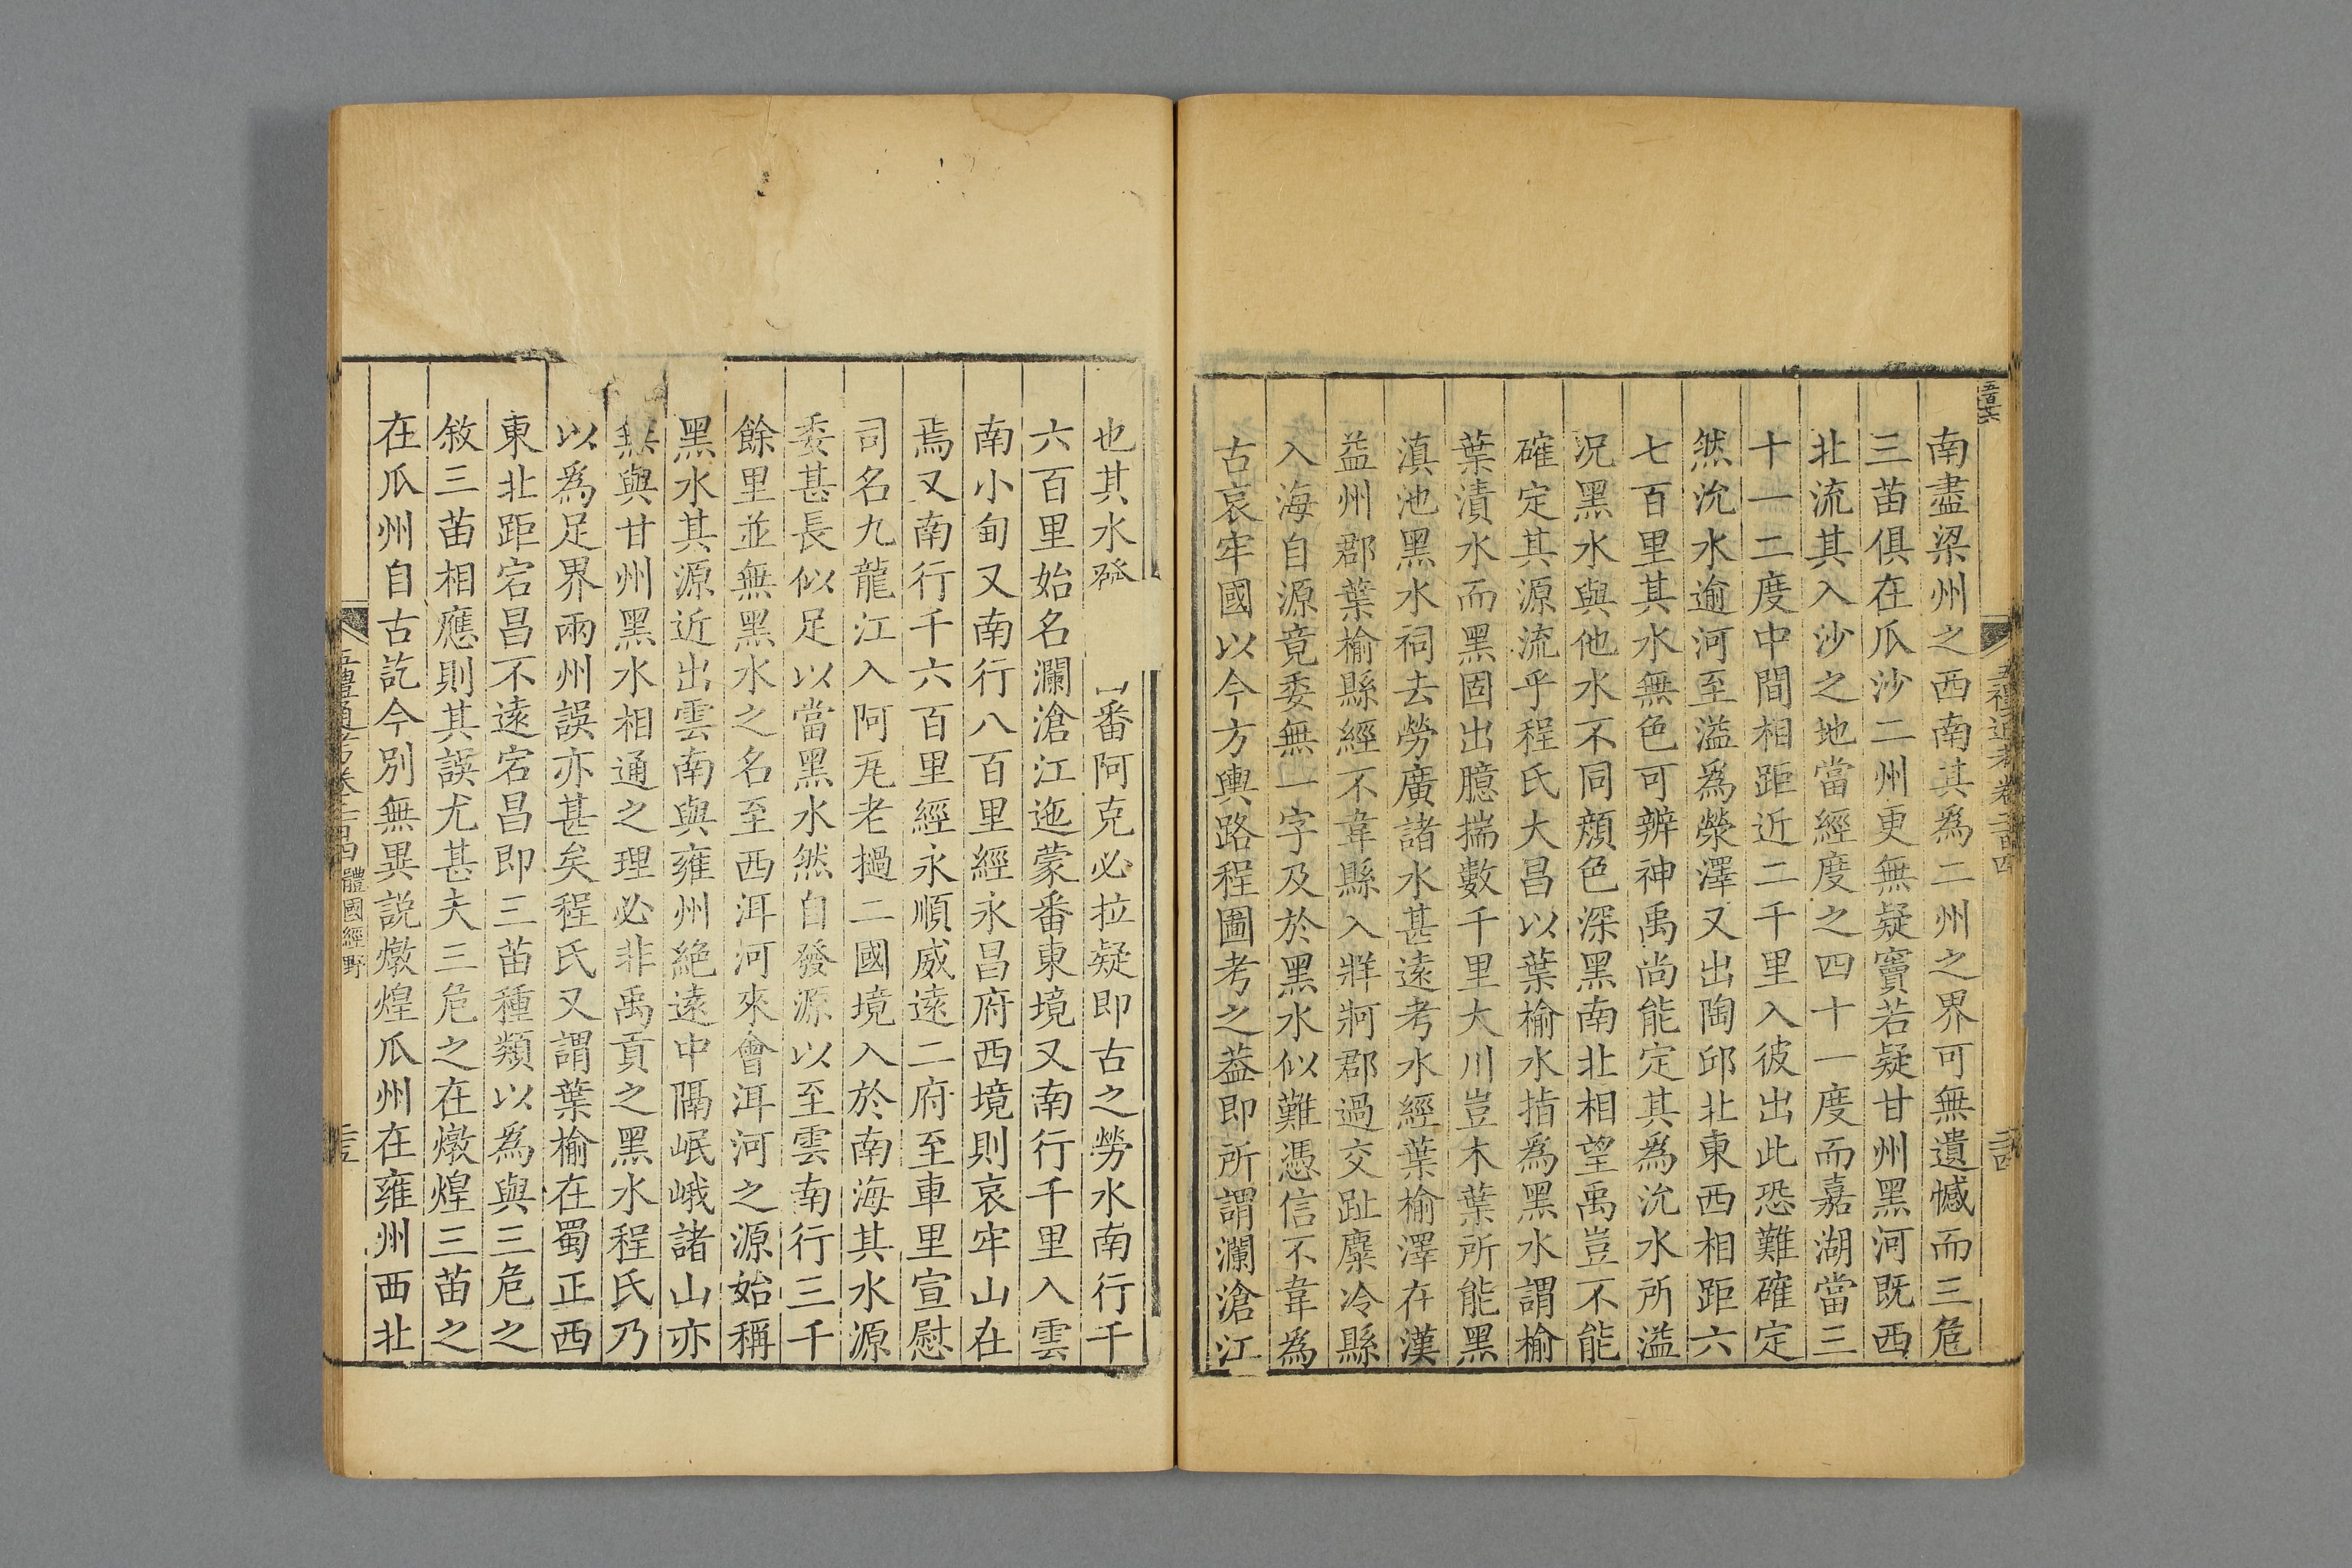 南盡梁州之西南其為二州之界可無遺憾而三危
三苗俱在瓜沙二州更無疑竇若疑甘州黑河既西
北流其入沙之地當經度之四十一度而嘉湖當三
十一二度中間相距近二千里入彼出此恐難確定
然沇水逾河至溢為滎澤又出陶邱北東西相距六
七百里其水無色可辨神禹尚能定其為沇水所溢
況黑水與他水不同顔色深黑南北相望禹豈不能
確定其源流乎程氏大昌以葉榆水指為黑水謂榆
葉漬水而黑固出臆揣數千里大川豈木葉所能黑
滇池黑水祠去勞廣諸水甚遠考水經葉榆澤在漢
益州郡葉榆縣經不韋縣入牂牁郡過交趾麋冷縣
入海自源竟委無一字及於黑水似難憑信不韋為
古哀牢國以今方輿路程圖考之葢即所謂瀾滄江
也其水發番阿克必拉疑即古之勞水南行千
六百里始名瀾滄江迤蒙番東境又南行千里入雲
南小甸又南行八百里經永昌府西境則哀牢山在
焉又南行千六百里經永順威遠二府至車里宣慰
司名九龍江入阿瓦老撾二國境入於南海其水源
委甚長似足以當黑水然自發源以至雲南行三千
餘里並無黑水之名至西洱河來會洱河之源始稱
黑水其源近出雲南與雍州絶遠中隔岷峨諸山亦
無與甘州黑水相通之理必非禹貢之黑水程氏乃
以為足界兩州誤亦甚矣程氏又謂葉榆在蜀正西
東北距宕昌不遠宕昌即三苗種類以為與三危之
敘三苗相應則其誤尤甚夫三危之在燉煌三苗之
在瓜州自古訖今別無異説燉煌瓜州在雍州西北
五禮通考卷二百四 體國經野